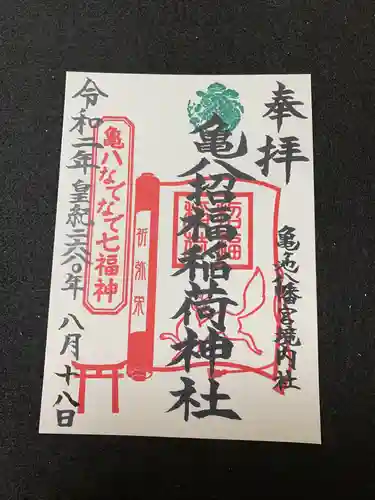 奉拝
亀ヶ池八幡宮境内社
亀八招福稲荷神社
招福
稲荷
亀八なでなで七福神
令和二年 皇紀二六八〇年 八月十八日